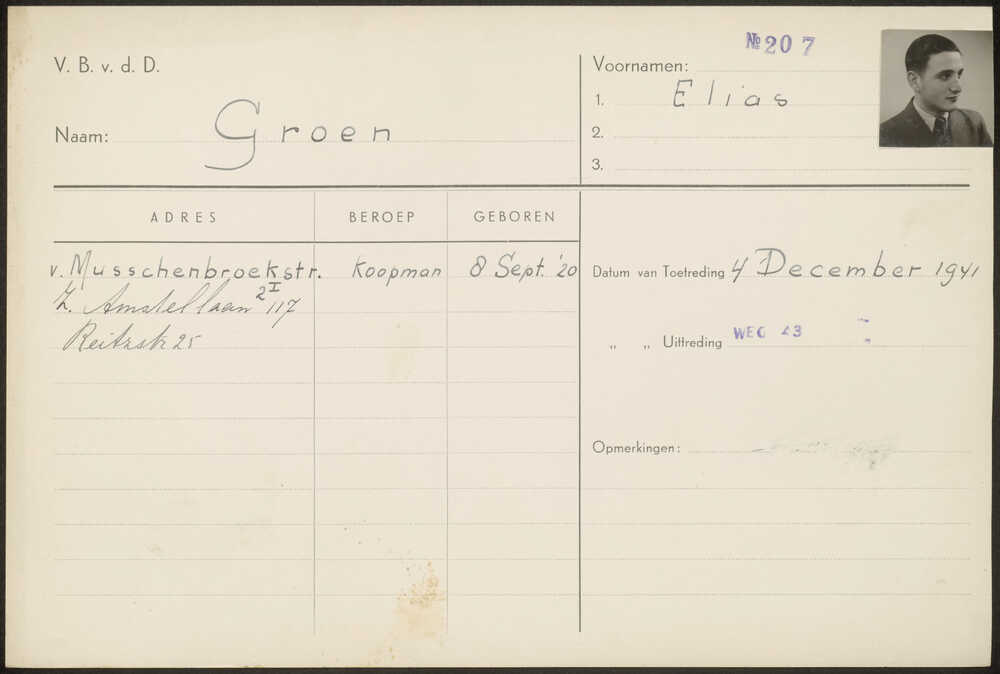 № 207
V. B. v. d. D.
Naam: Groen
Voornamen:
1. Elias
2.
3.
ADRES BEROEP GEBOREN
v. Musschenbroekstr. Koopman 8 Sept. '20
Z. Amstellaan 117 2 I
Reitzstr 25
Datum van Toetreding 4 December 1941
„ „ Uittreding WEG 43
Opmerkingen: